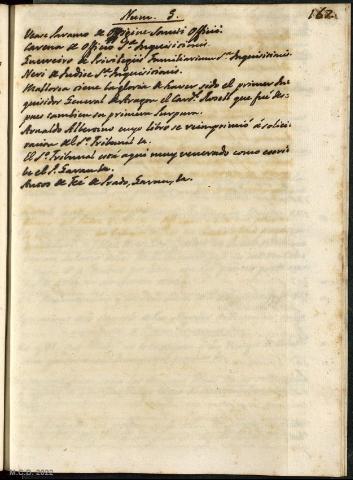 Num. 3.
162.
Vease Paramo de Origine Sancti Officii.
Carena de Officio Stæ Inquisicionis.
Guerreiro de Privilegiis Familiarium Stæ Inquisicionis.
Neri de Iudice Stæ Inquisicionis.
Mallorca tiene la gloria de haver sido el primer In-
quisidor General de Aragon el Card.l Rosell que fue des-
pues tambien su primera Purpura.
Arnaldo Albertino cuyo libro se reimprimió á solici-
tación del Sto. Tribunal &a.
El Sto. Tribunal está aqui muy venerado como escri-
be el P. Garau &a.
Autos de Feé de Prado, Garau, &a.
M.C.D. 2022